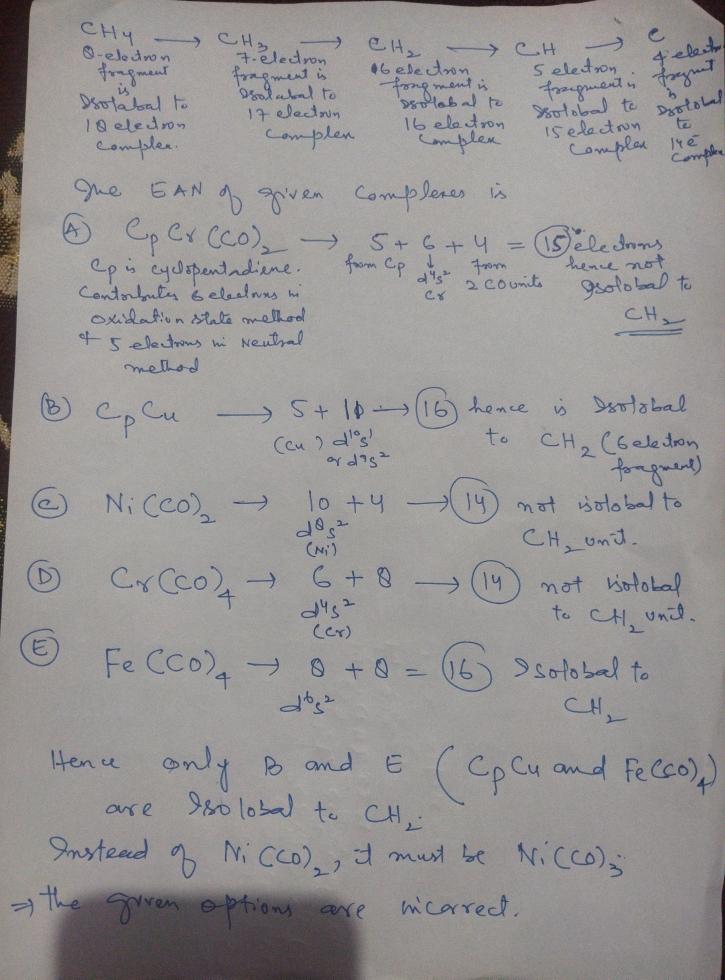 CH4 → CH3 → CH2 → CH → C
8-electron fragment is Isolabal to 18 electron complex.
7-electron fragment is Isolabal to 17 electron complex
6 electron fragment is Isolobal to 16 electron complex
5 electron fragment is Isolobal to 15 electron complex
4 electron fragment is Isolobal to 14 e⁻ complex
The EAN of given complexes is
(A) Cp Cr (CO)2 → 5 + 6 + 4 = (15) electrons
from Cp ↓ d⁴s² Cr from 2 CO units hence not Isolobal to CH2
Cp is cyclopentadiene.
Contributes 6 electrons in
oxidation state method
& 5 electrons in Neutral
method
(B) Cp Cu → 5 + 11 → (16) hence is Isolobal
(Cu) d¹⁰s¹ or d⁹s² to CH2 (6 electron fragment)
(C) Ni (CO)2 → 10 + 4 → (14) not isolobal to
d⁸s² (Ni) CH2 unit.
(D) Cr (CO)4 → 6 + 8 → (14) not isolobal
d⁴s² (Cr) to CH2 unit.
(E) Fe (CO)4 → 8 + 8 = (16) Isolobal to
d⁶s² CH2
Hence only B and E (CpCu and Fe(CO)4)
are Isolobal to CH2.
Instead of Ni (CO)2, it must be Ni (CO)3
⇒ the given options are incorrect.